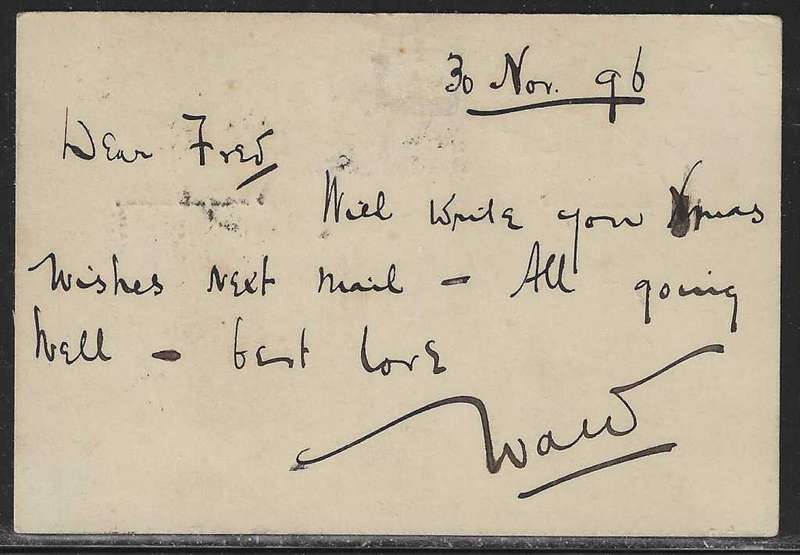 30 Nov. 96
Dear Fred
Will write you Xmas
wishes next mail – All going
well – best love